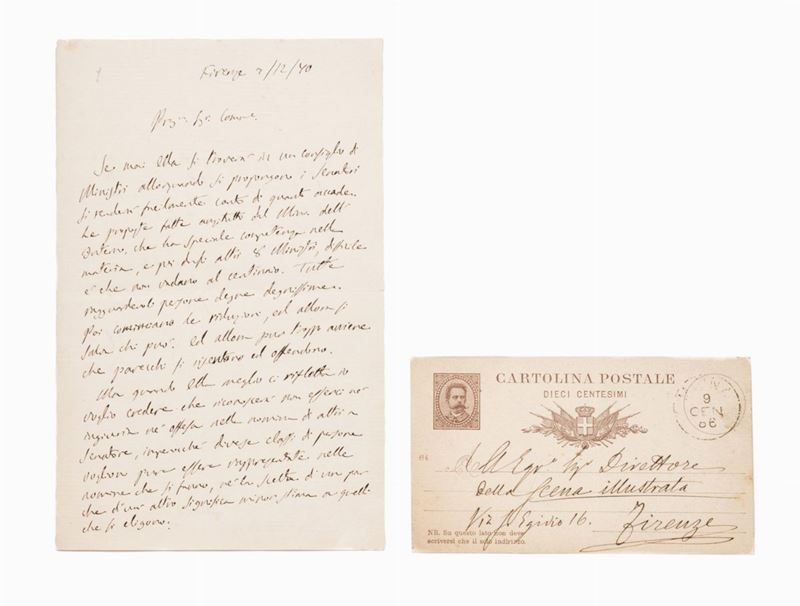 Firenze 7/12/90
Se mai Ella si troverà in un consiglio di
Ministri allorquando si propongono i Senatori
si renderà facilmente conto di quanto accade.
Le proposte fatte anzitutto dal Min. dell'
Interno, che ha speciale competenza nella
materia, e poi dagli altri 8 Ministri, difficile
è che non vadano al centinaio. Tutte
risguardanti persone degne degnissime.
Poi cominciano le riduzioni, ed allora si
salvi chi può. Ed allora pur troppo avviene
che parecchi si risentono ed offendono.
Ma quando Ella meglio ci rifletta io
voglio credere che riconoscerà non esserci nè
ingiuria nè offesa nella nomina di altri a
Senatore, imperochè diverse classi di persone
vogliono pure essere rappresentate nelle
nomine che si fanno, nè la scelta di uno più
che d'un altro significa minor stima a quelli
che si elegono.
CARTOLINA POSTALE
DIECI CENTESIMI
9
GEN
86
All'Egr. Sigr Direttore
della Scena illustrata
Via S. Egidio 16. Firenze
NB. Su questo lato non deve
scriversi che il solo indirizzo.